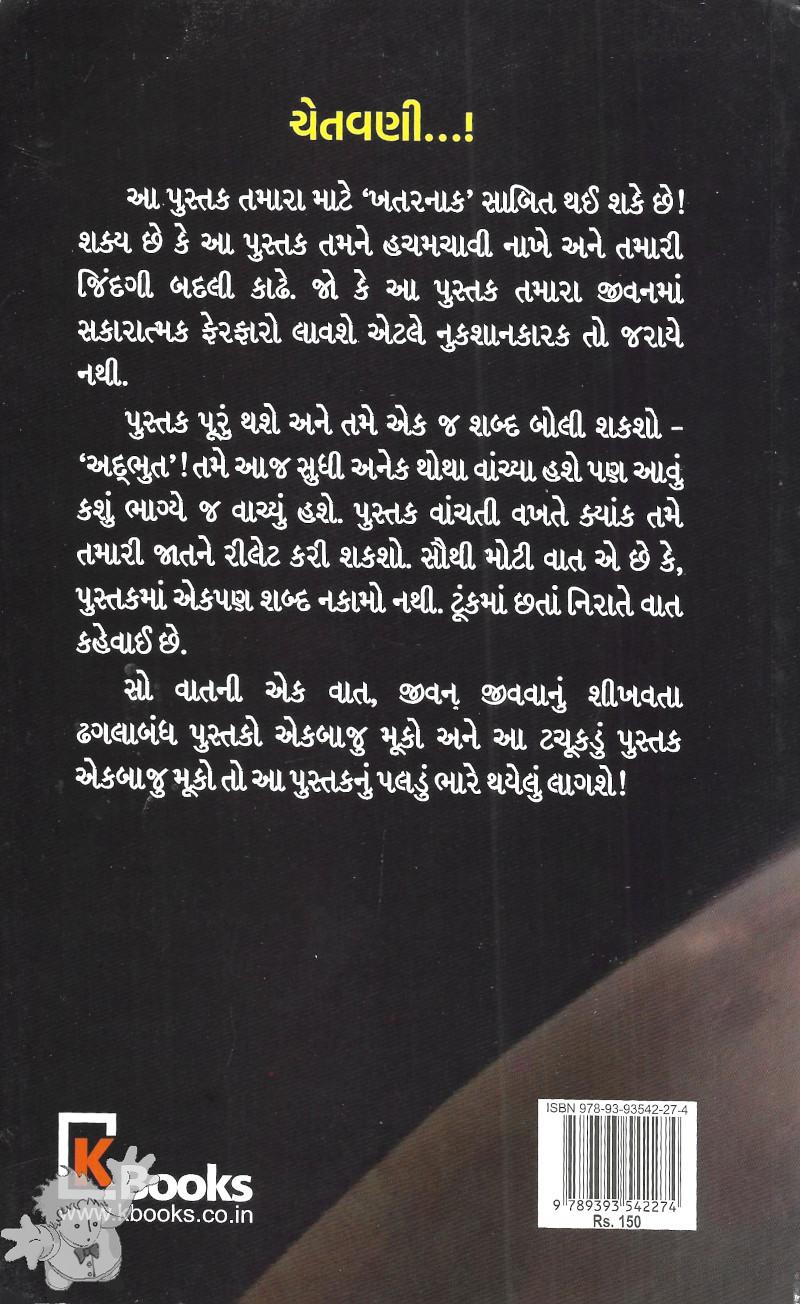 ચેતવણી...!
આ પુસ્તક તમારા માટે ‘ખતરનાક’ સાબિત થઈ શકે છે!
શક્ય છે કે આ પુસ્તક તમને હચમચાવી નાખે અને તમારી
જિંદગી બદલી કાઢે. જો કે આ પુસ્તક તમારા જીવનમાં
સકારાત્મક ફેરફારો લાવશે એટલે નુકશાનકારક તો જરાયે
નથી.
પુસ્તક પૂરું થશે અને તમે એક જ શબ્દ બોલી શકશો -
‘અદ્ભુત’! તમે આજ સુધી અનેક થોથા વાંચ્યા હશે પણ આવું
કશું ભાગ્યે જ વાચ્યું હશે. પુસ્તક વાંચતી વખતે ક્યાંક તમે
તમારી જાતને રીલેટ કરી શકશો. સૌથી મોટી વાત એ છે કે,
પુસ્તકમાં એકપણ શબ્દ નકામો નથી. ટૂંકમાં છતાં નિરાતે વાત
કહેવાઈ છે.
સો વાતની એક વાત, જીવન જીવવાનું શીખવતા
ઢગલાબંધ પુસ્તકો એકબાજુ મૂકો અને આ ટચૂકડું પુસ્તક
એકબાજુ મૂકો તો આ પુસ્તકનું પલડું ભારે થયેલું લાગશે!
ISBN 978-93-93542-27-4
9 789393 542274
Rs. 150
K Books
www.kbooks.co.in